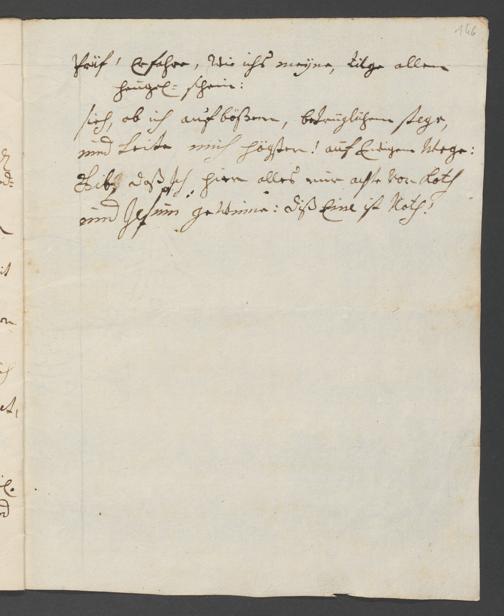 166
Prüf! Erfahre, Wie ichs meÿne, tilge allen
heüchel=schein:
sieh, ob ich auf bößem, betrüglichem stege,
und Leite mich högster! auf Ewigem Wege:
Gib, daß ich hier alles nur achte Vor Koth
und Jesum gewinne: diß Eine ist Noth!